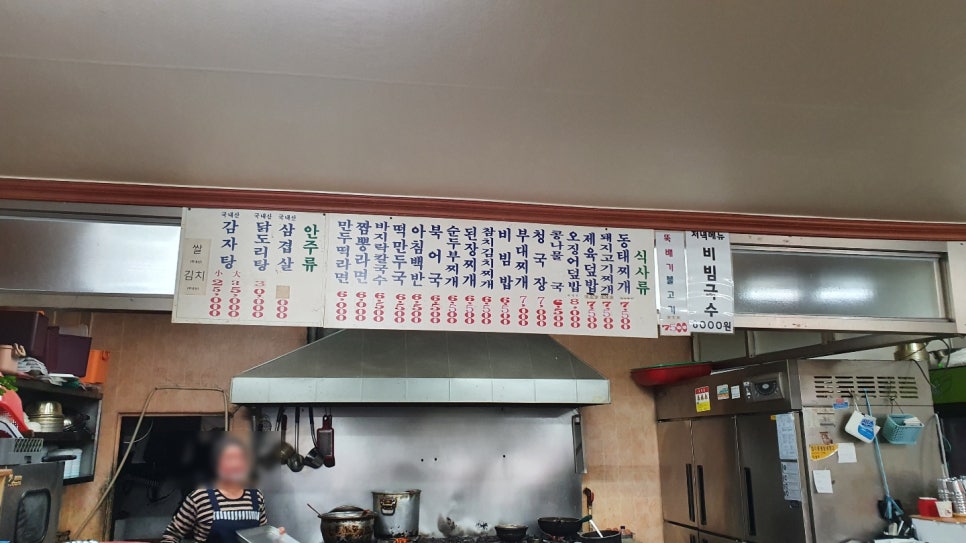 저녁메뉴
비빔국수
6000원
뚝배기불고기
7500
식사류
동태찌개 7500
돼지고기찌개 7500
제육덮밥 7500
오징어덮밥 8000
콩나물국 6500
청국장 7000
부대찌개 7000
비빔밥 6500
참치김치찌개 6500
된장찌개 6500
순두부찌개 6500
북어국 6500
아침백반 6500
떡만두국 6500
바지락칼국수 6500
짬뽕라면 6000
만두떡라면 6000
안주류
국내산 삼겹살
국내산 닭도리탕 30,000
국내산 감자탕
大 35,000
小 25,000
쌀
김치